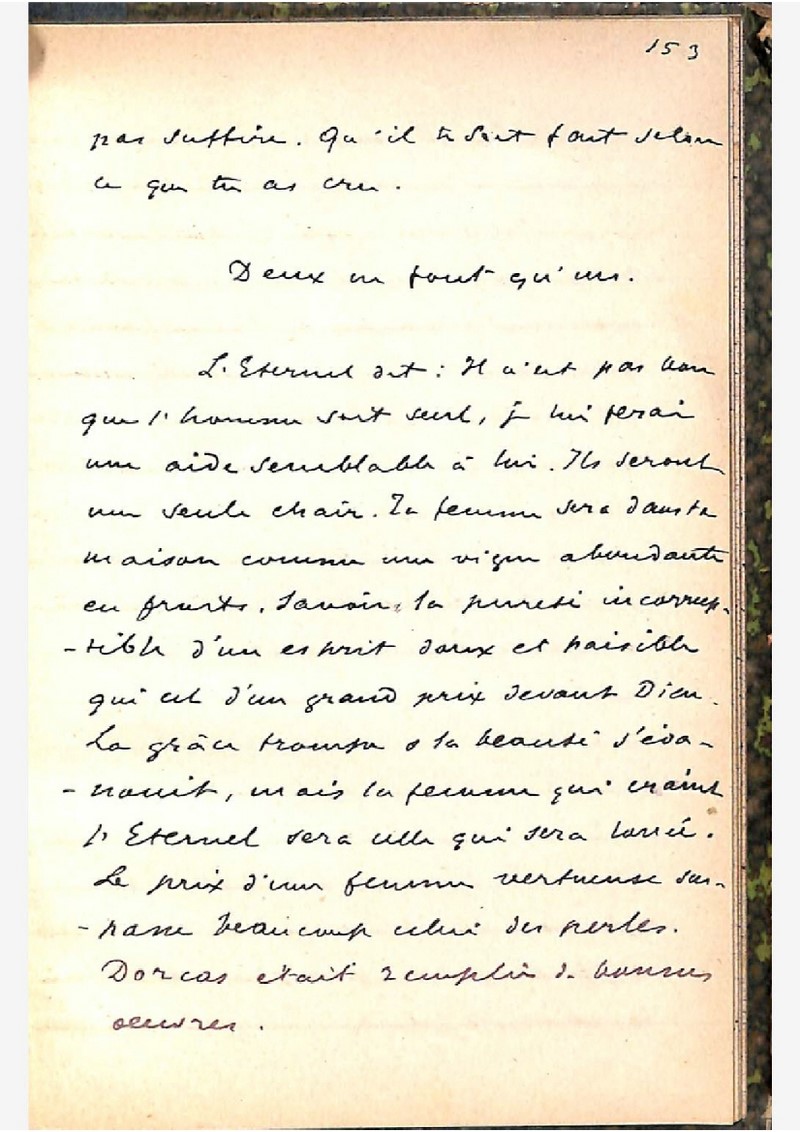 153
pas suffire. Qu'il te soit fait selon
ce que tu as cru.
Deux ne font qu'un.
L'Eternel dit : Il n'est pas bon
que l'homme soit seul, je lui ferai
une aide semblable à lui. Ils seront
une seule chair. Ta femme sera dans ta
maison comme une vigne abondante
en fruits. Savoir, la pureté incorrup-
-tible d'un esprit doux et paisible
qui est d'un grand prix devant Dieu.
La grâce trompe & la beauté s'éva-
-nouit, mais la femme qui craint
l'Eternel sera celle qui sera louée.
Le prix d'une femme vertueuse sur-
-passe beaucoup celui des perles.
Dorcas était remplie de bonnes
oeuvres.